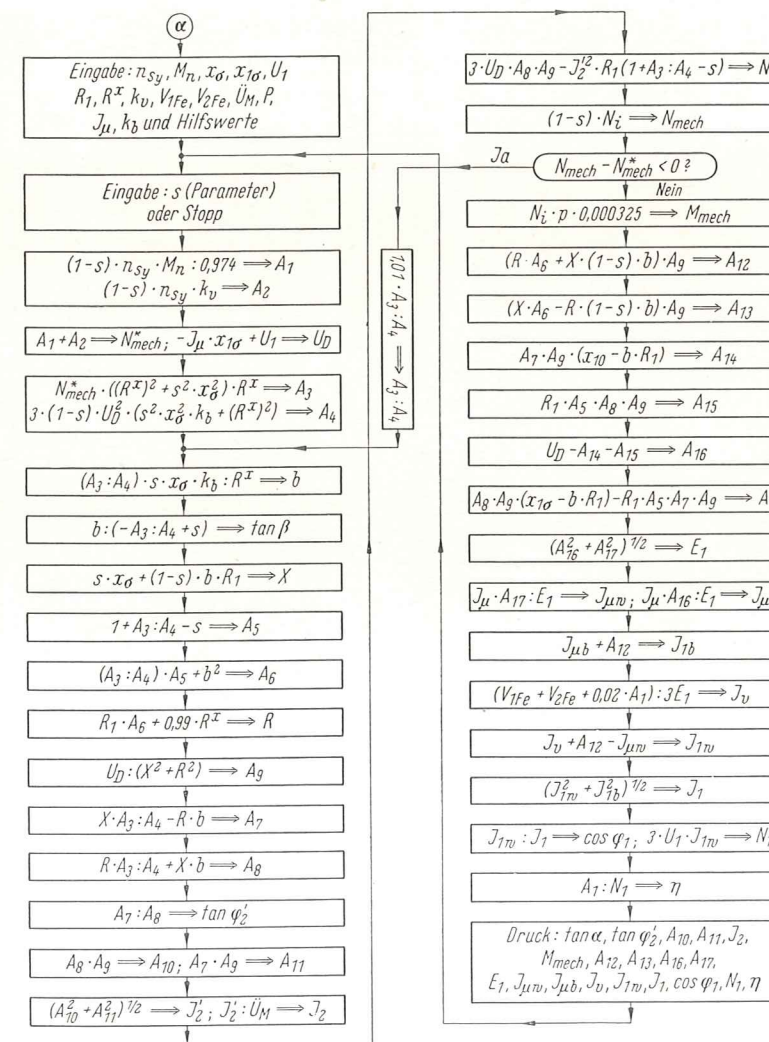 α
Eingabe: n_sy, M_n, x_σ, x_1σ, U_1
R_1, R^x, k_v, V_1Fe, V_2Fe, Ü_M, P,
J_μ, k_b und Hilfswerte
Eingabe: s (Parameter)
oder Stopp
(1-s)·n_sy·M_n:0,974 ⟹ A_1
(1-s)·n_sy·k_v ⟹ A_2
A_1+A_2 ⟹ N*_mech; -J_μ·x_1σ+U_1 ⟹ U_D
N*_mech·((R^x)^2+s^2·x_σ^2)·R^x ⟹ A_3
3·(1-s)·U_D^2·(s^2·x_σ^2·k_b+(R^x)^2) ⟹ A_4
(A_3:A_4)·s·x_σ·k_b:R^x ⟹ b
b:(-A_3:A_4+s) ⟹ tan β
s·x_σ+(1-s)·b·R_1 ⟹ X
1+A_3:A_4-s ⟹ A_5
(A_3:A_4)·A_5+b^2 ⟹ A_6
R_1·A_6+0,99·R^x ⟹ R
U_D:(X^2+R^2) ⟹ A_9
X·A_3:A_4-R·b ⟹ A_7
R·A_3:A_4+X·b ⟹ A_8
A_7:A_8 ⟹ tan φ'_2
A_8·A_9 ⟹ A_10; A_7·A_9 ⟹ A_11
(A_10^2+A_11^2)^1/2 ⟹ J'_2; J'_2:Ü_M ⟹ J_2
1,01·A_3:A_4 ⟹ A_3:A_4
3·U_D·A_8·A_9-J'_2^2·R_1(1+A_3:A_4-s) ⟹ N
(1-s)·N_i ⟹ N_mech
Ja
N_mech-N*_mech<0?
Nein
N_i·p·0,000325 ⟹ M_mech
(R·A_6+X·(1-s)·b)·A_9 ⟹ A_12
(X·A_6-R·(1-s)·b)·A_9 ⟹ A_13
A_7·A_9·(x_10-b·R_1) ⟹ A_14
R_1·A_5·A_8·A_9 ⟹ A_15
U_D-A_14-A_15 ⟹ A_16
A_8·A_9·(x_1σ-b·R_1)-R_1·A_5·A_7·A_9 ⟹ A
(A_16^2+A_17^2)^1/2 ⟹ E_1
J_μ·A_17:E_1 ⟹ J_μw; J_μ·A_16:E_1 ⟹ J_μ
J_μb+A_12 ⟹ J_1b
(V_1Fe+V_2Fe+0,02·A_1):3E_1 ⟹ J_v
J_v+A_12-J_μw ⟹ J_1w
(J_1w^2+J_1b^2)^1/2 ⟹ J_1
J_1w:J_1 ⟹ cos φ_1; 3·U_1·J_1w ⟹ N
A_1:N_1 ⟹ η
Druck: tan α, tan φ'_2, A_10, A_11, J_2,
M_mech, A_12, A_13, A_16, A_17,
E_1, J_μw, J_μb, J_v, J_1w, J_1, cos φ_1, N_1, η